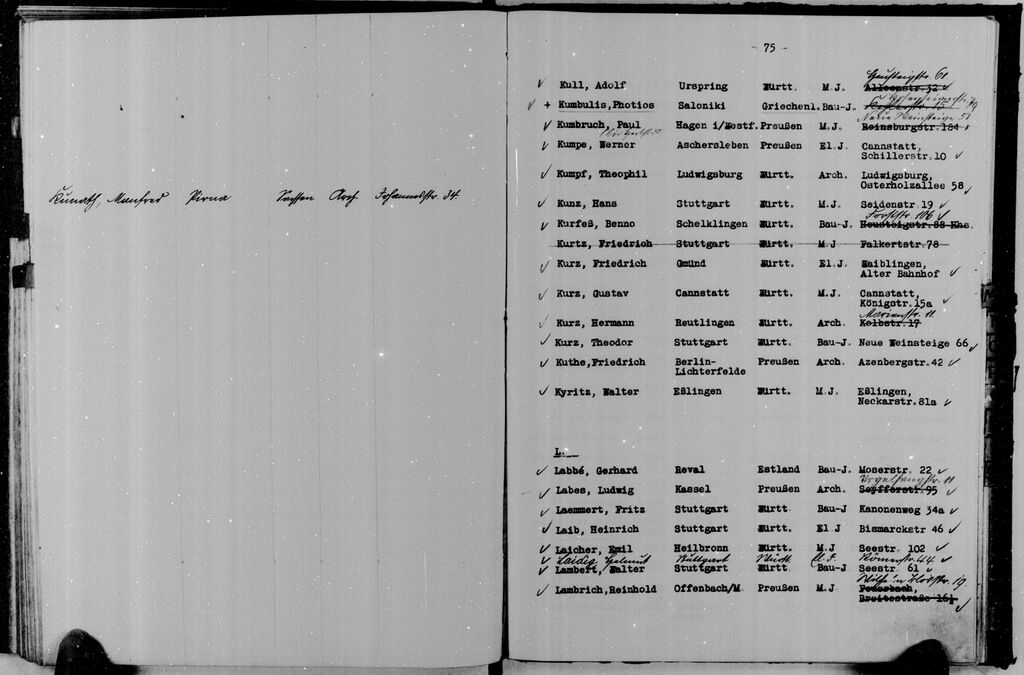 Kunath, Manfred Pirna Sachsen Arch. Johannesstr. 34.
- 75 -
Hausteigstr. 61
Kull, Adolf Urspring Württ. M.J. Alleenstr. 32
+ Kumbulis, Photios Saloniki Griechenl. Bau-J. 19
Neue Weinsteige 51
Kumbruch, Paul Hagen i/Westf. Preußen M.J. Reinsburgstr. 184
Kumpe, Werner Aschersleben Preußen El.J. Cannstatt,
Schillerstr. 10
Kumpf, Theophil Ludwigsburg Württ. Arch. Ludwigsburg,
Osterholzallee 58
Kunz, Hans Stuttgart Württ. M.J. Seidenstr. 19
Forststr. 106
Kurfeß, Benno Schelklingen Württ. Bau-J. Heusteigstr. 88 Hhs.
Kurtz, Friedrich Stuttgart Württ. M.J Falkertstr. 78
Kurz, Friedrich Gmünd Württ. El.J. Waiblingen,
Alter Bahnhof
Kurz, Gustav Cannstatt Württ. M.J. Cannstatt,
Königstr. 15a
Marienstr. 11
Kurz, Hermann Reutlingen Württ. Arch. Kolbstr. 17
Kurz, Theodor Stuttgart Württ. Bau-J. Neue Weinsteige 66
Kuthe, Friedrich Berlin- Preußen Arch. Azenbergstr. 42
Lichterfelde
Kyritz, Walter Eßlingen Württ. M.J. Eßlingen,
Neckarstr. 81a
L.
Labbé, Gerhard Reval Estland Bau-J. Moserstr. 22
Vogelsangstr. 11
Labes, Ludwig Kassel Preußen Arch. Seyfferstr. 95
Laemmert, Fritz Stuttgart Württ. Bau-J Kanonenweg 34a
Laib, Heinrich Stuttgart Württ. El.J Bismarckstr 46
Laicher, Emil Heilbronn Württ. M.J Seestr. 102
Laidig, Helmut Stuttgart Württ. El.J. Römerstr. 44
Lambert, Walter Stuttgart Württ. Bau-J Seestr. 61
19
Lambrich, Reinhold Offenbach/M. Preußen M.J Feuerbach,
Breitestraße 16½